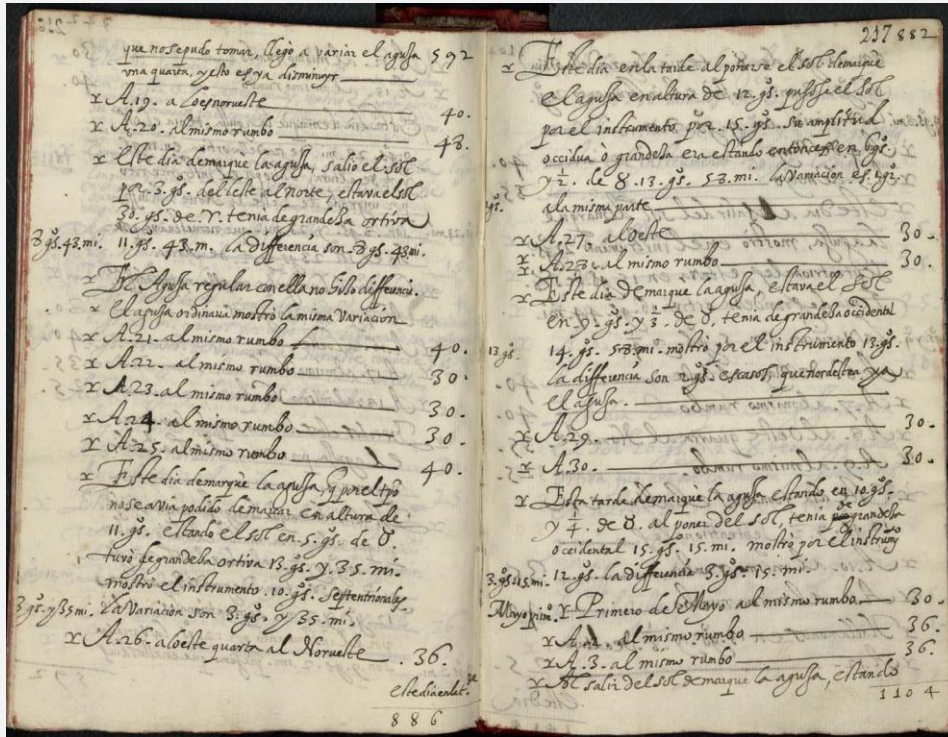 que nose pudo tomar, llego a variar el agussa 592
vna quarta, y esto es ya disminuyr
x A.19. a Loesnorueste 40.
x A.20. al mismo rumbo 48.
x Este dia demarque la agussa, salio el sol
por .3. gs. del leste al norte, estava el sol
30. gs. de ♈. tenia de grandessa ortiva
8 gs. 43. mi. 11. gs. 43. m. la differencia son .8 gs. 43 mi.
x El Agussa regular con ella no hisso differencia.
x El agussa ordinaria mostró la misma variacion
x A.21. al mismo rumbo 40.
x A.22. al mismo rumbo 30.
x A.23. al mismo rumbo 30.
x A.24. al mismo rumbo 30.
x A.25. al mismo rumbo 40.
x Este dia demarque la agussa, q por el tpō
nose avia podido demarcar en altura de
11. gs. estando el sol en .5. gs. de ♉.
tuvo de grandessa ortiva 13. gs. y 35. mi.
mostro el instrumento .10. gs. septentrionales
3 gs. y 35 mi. La Variacion son 3. gs. y 35. mi.
x A.26. aloeste quarta al Norueste 36.
este dia en la t.de
886
217 882
x Este dia en la tarde al ponerse el sol demarque
el agussa en altura de 12. gs. pusose el sol
por el instrumento por .15. gs. su amplitud
occidua ò grandessa era estando entonces en 6 gs.
y ½. de ♉. 13. gs. 58. mi. la variacion es .1 gs.
1 gs. a la misma parte
x A.27. aloeste 30.
x A.28. al mismo rumbo 30.
x Este dia Demarque la agussa, estava el sol
en .9. gs. y ⅓. de ♉, tenia de grandessa occidental
13 gs. 14. gs. 58. mi. mostro por el instrumento 13. gs.
la differencia son 2 gs. escasos, que nordestea ya
el agussa.
x A.29. 30.
x A.30. 30.
x Esta tarde demarque la agussa estando en .10. gs.
y ¼. de ♉. al poner del sol, tenia de grandessa
occidental 15. gs. 15. mi. mostro por el instrumto
3. gs. 15. mi. 12. gs. la differencia 3. gs. 15. mi.
Mayo prim.o x Primero de Mayo al mismo rumbo 30.
x A.2. al mismo rumbo 36.
x A.3. al mismo rumbo 36.
x Al salir del sol demarque la agussa, estando
1104